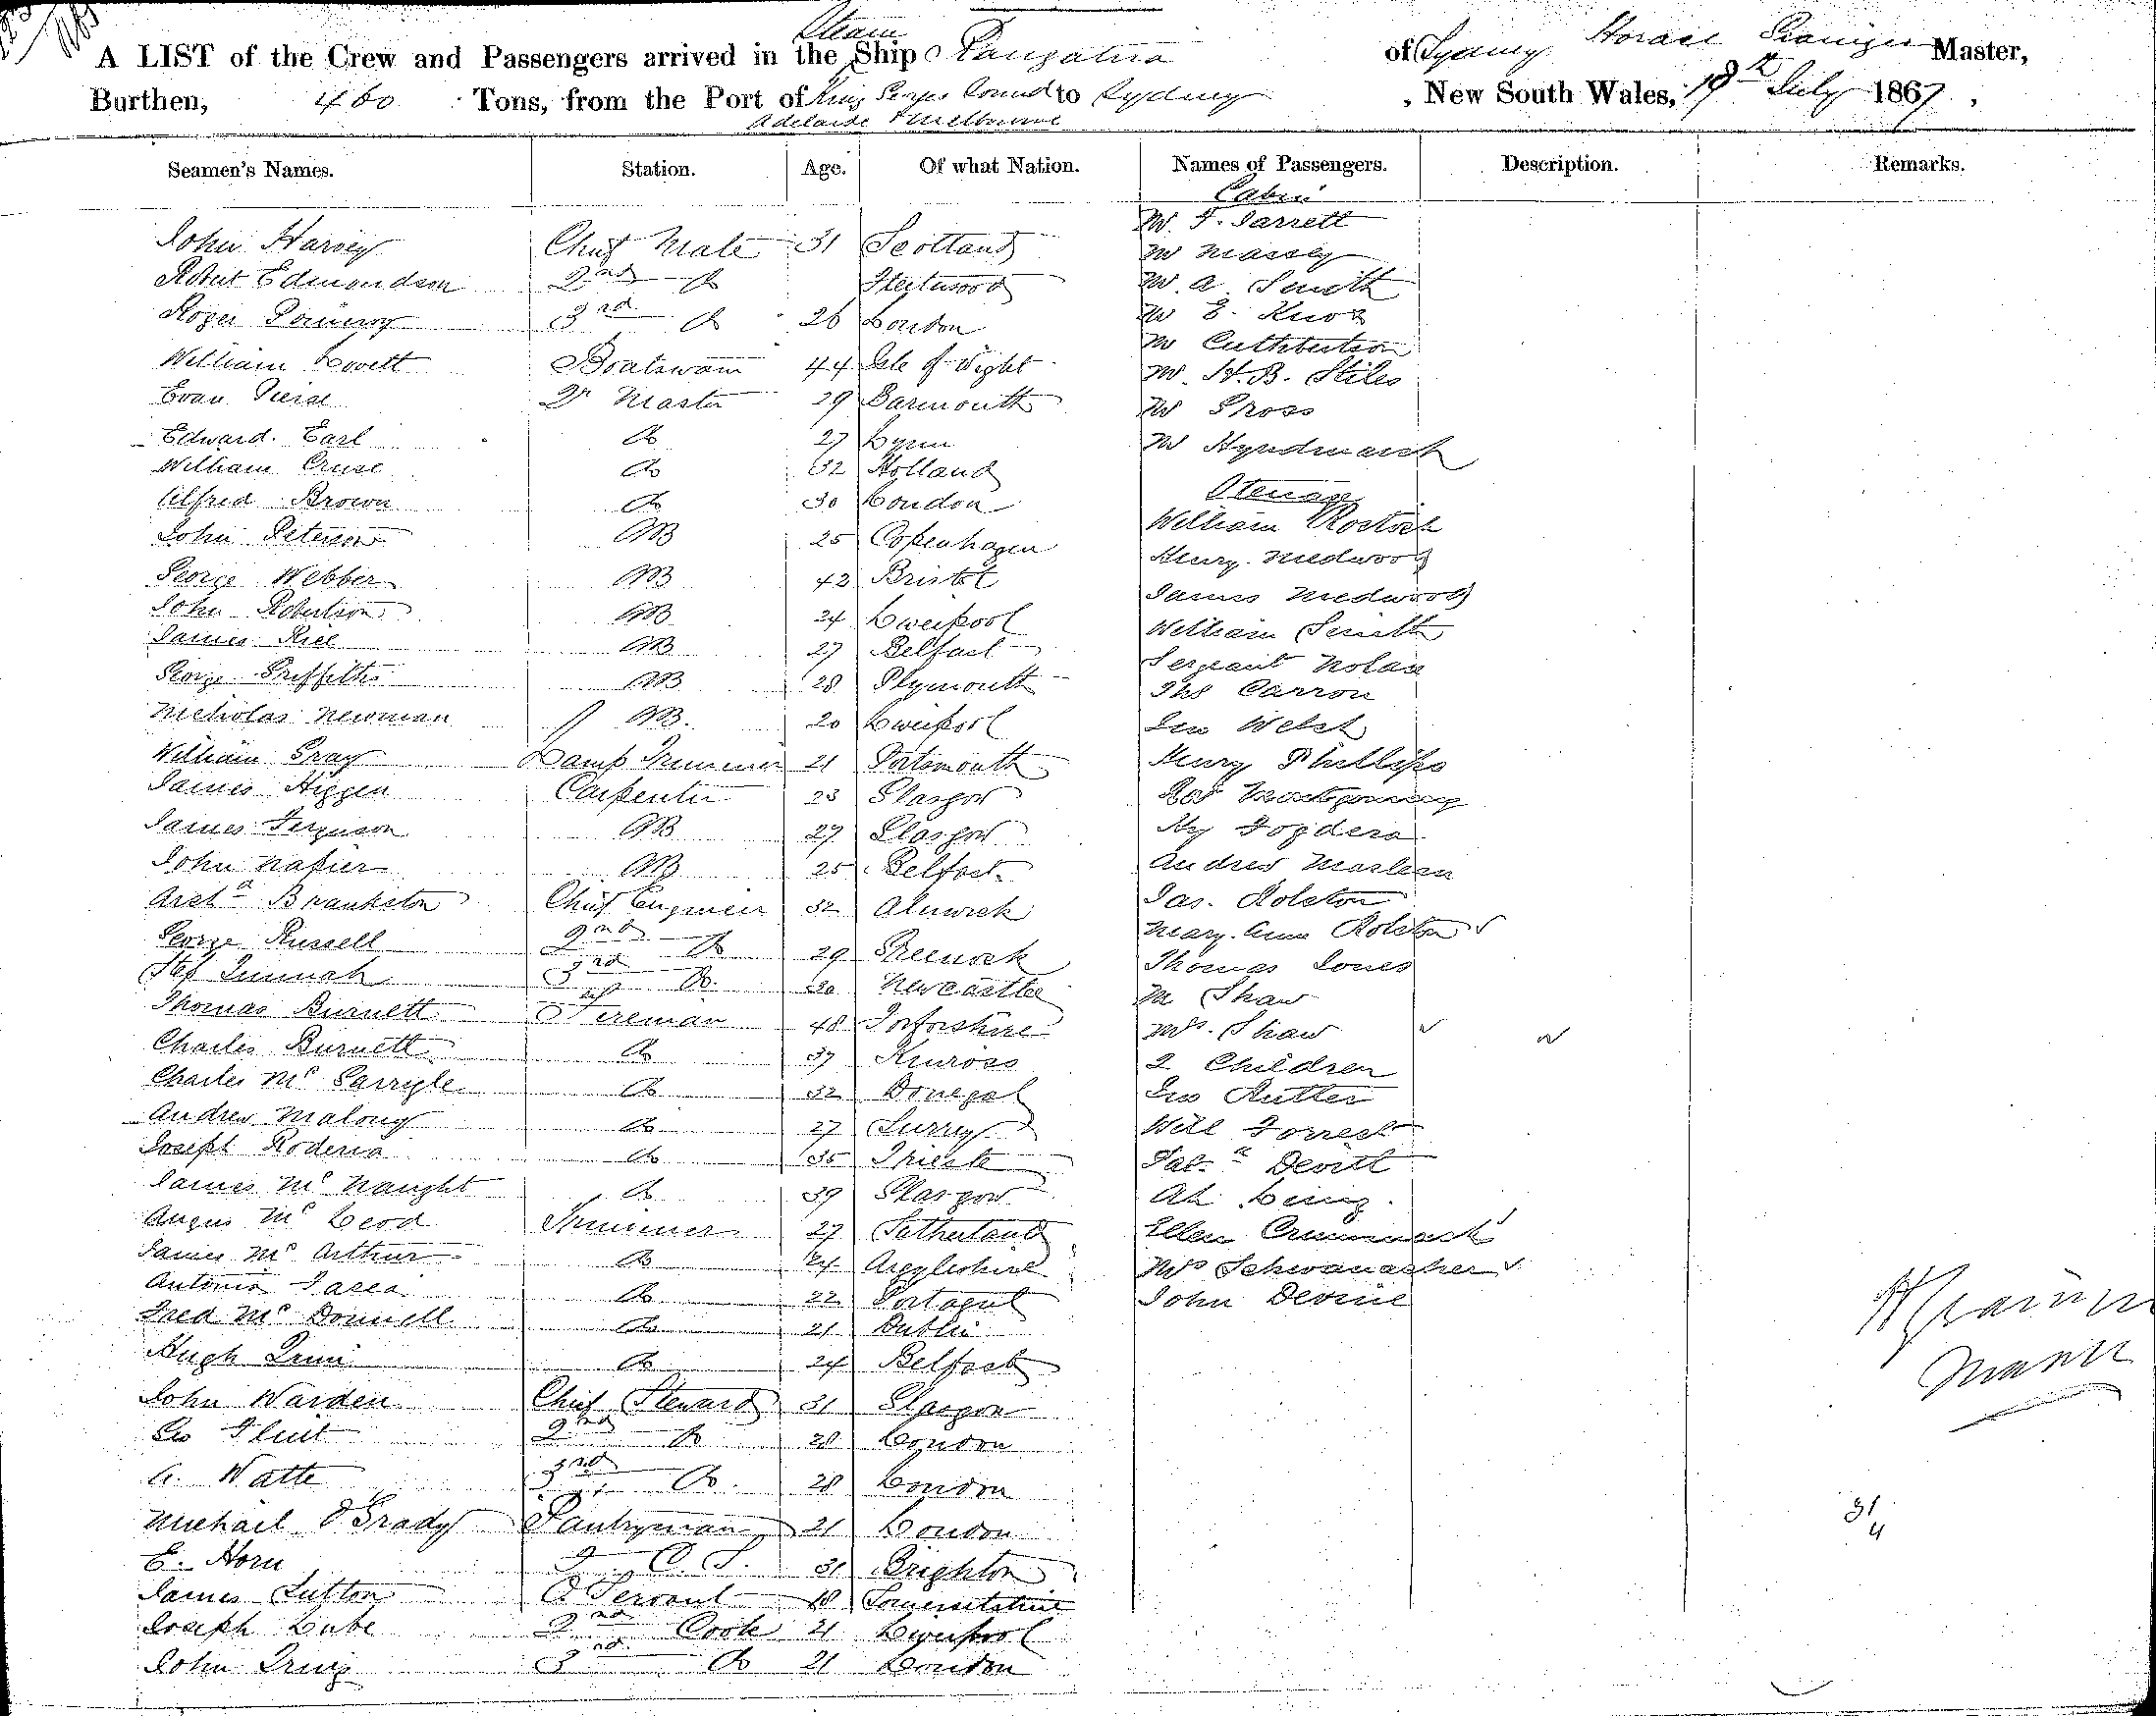 A LIST of the Crew and Passengers arrived in the Steam Ship Rangatira of Sydney Horace Master,
Burthen, 460 Tons, from the Port of King Georges Sound to Sydney, New South Wales, 19th July 1867,
Adelaide Melbourne
Seamen's Names. Station. Age. Of what Nation. Names of Passengers. Description. Remarks.
Cabin
John Harvey Chief Mate 31 Scotland Mr. F. Jarrett
Robert Edmondson 2nd Do Fleetwood Mr Massey
Roger 3rd Do 26 London Mr. A. Smith
Mr E. Knox
William Lovett Boatswain 44 Isle of Wight Mr Cuthbertson
Evan Qr Master 29 Mr. H. B. Stiles
Mr Pross
Edward Earl Do 27 Lynn Mr Hyndmarsh
William Cruse Do 32 Holland
Alfred Brown Do 30 London Steerage
John Peterson AB 25 Copenhagen William
George Webber AB 42 Bristol Henry Medwood
John Robertson AB 24 Liverpool James Medwood
James AB 27 Belfast William Smith
George Griffiths AB 28 Plymouth Sergeant Nolan
Ths Carron
Nicholas Newman AB. 20 Liverpool Geo Welsh
William Gray Lamp Trimmer 21 Portsmouth Henry Phillips
James Higgen Carpenter 23 Glasgow Robt Montgomery
James Ferguson AB 27 Glasgow Hy
John Napier AB 25 Belfast Andrew
Archd Brankston Chief Engineer 32 Alnwick Jas. Rolston
George Russell 2nd Do 29 Greenock Mary Ann Rolston
3rd Do. Newcastle Thomas Jones
Mr Shaw
Thomas Burnett Fireman 48 Forfarshire Mrs. Shaw
Charles Burnett Do 37 Kinross 2 Children
Charles Mc Do 32 Donegal Geo Rutter
Andrew Malony Do 27 Surrey Will Forrest
Joseph Do 35 Trieste Patk Devitt
James Mc Naught Do 39 Glasgow Ah
Angus Mc Leod Trimmer 27 Sutherland Ellen
James Mc Arthur Do 24 Argyleshire Mrs Schwanacher
Antonio Do 22 Portagul John Devine
Fred Mc Donnell Do 21 Dublin
Hugh Do 24 Belfast
John Warden Chief Steward 31 Glasgow
Geo Flint 2nd Do 28 London
3rd Do. 28 London
Michael O'Grady Pantryman 21 London
E. Horn 2 C. S. 31 Brighton
James Sutton Servant 18 Somersetshire
Joseph 2nd Cook 21 Liverpool
John 3rd Do 21 London
31
4